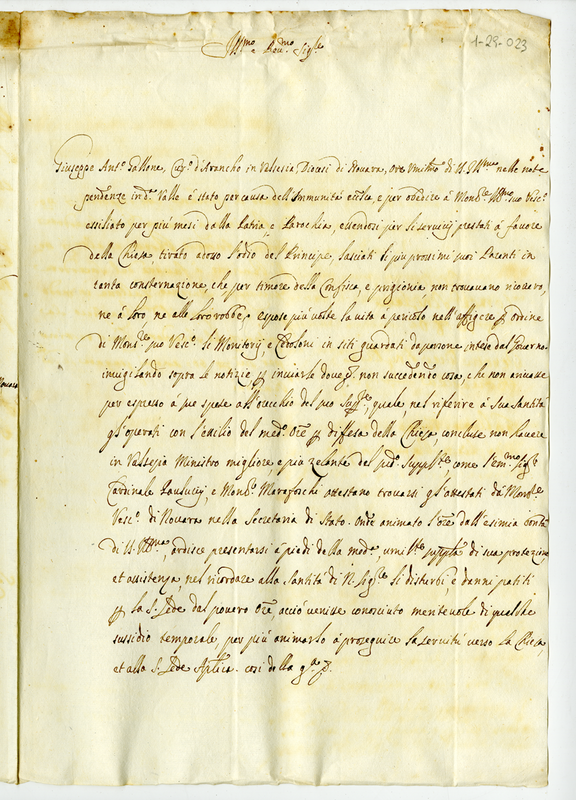 1-29-023
Ill.mo e Rev.mo Sig.re
Giuseppe Ant.o Gallone, Cur.o d'Arancho in Valsesia, Diocesi di Novara, Ore Umiliss.mo di V.S. Ill.ma nelle note
pendenze in d.a Valle è stato per causa dell'Immunità eccl.ca, e per obedire à Mons.re Ill.mo suo Vesc.o
essiliato per più mesi dalla Patria e Parochia, essendosi per li servitij prestati à favore
della Chiesa tirato adosso l'odio del Prencipe, lasciati li più prossimi suoi Parenti in
tanta consternazione, che per timore della Confisca, e prigionia non trovavano ricovero,
ne à loro ne alle loro robbe, espose più volte la vita à pericolo nell'affigere p ordine
di Mons.re suo Vesc.o li Monitorij, e Cedoloni in siti guardati da persone intese del Governo
invigilando sopra le notizie p inviarle dove p. non succedendo cosa, che non avisasse
per espresso à sue spese all'orecchio del suo Sup.re, quale nel riferire à Sua Santità
gl'operati con l'essilio del med.o Ore p diffesa della Chiesa concluse non havere
in Valsesia Ministro migliore e più zelante del sud.o Supp.te come l'Em.mo Sig.r
Cardinale Paulucij, e Mons.r Marefoschi attestano trovarsi gl'attestati di Mons.re
Vesc.o di Novara nella Secretaria di Stato. Onde animato l'Ore dall'esimia bontà
di V.S. Ill.ma, ardisce presentarsi à piedi della med.a umil.te supp.la di sua protezione
et assistenza, nel ricordare alla Santità di N. Sig.re li disturbi, e danni patiti
p la S. Sede dal povero Ore, acciò venisse conosciuto meritevole di qualche
sussidio temporale, per più animarlo à proseguire la servitù verso la Chiesa,
et alla S. Sede Ap.lica. così della g.a p.